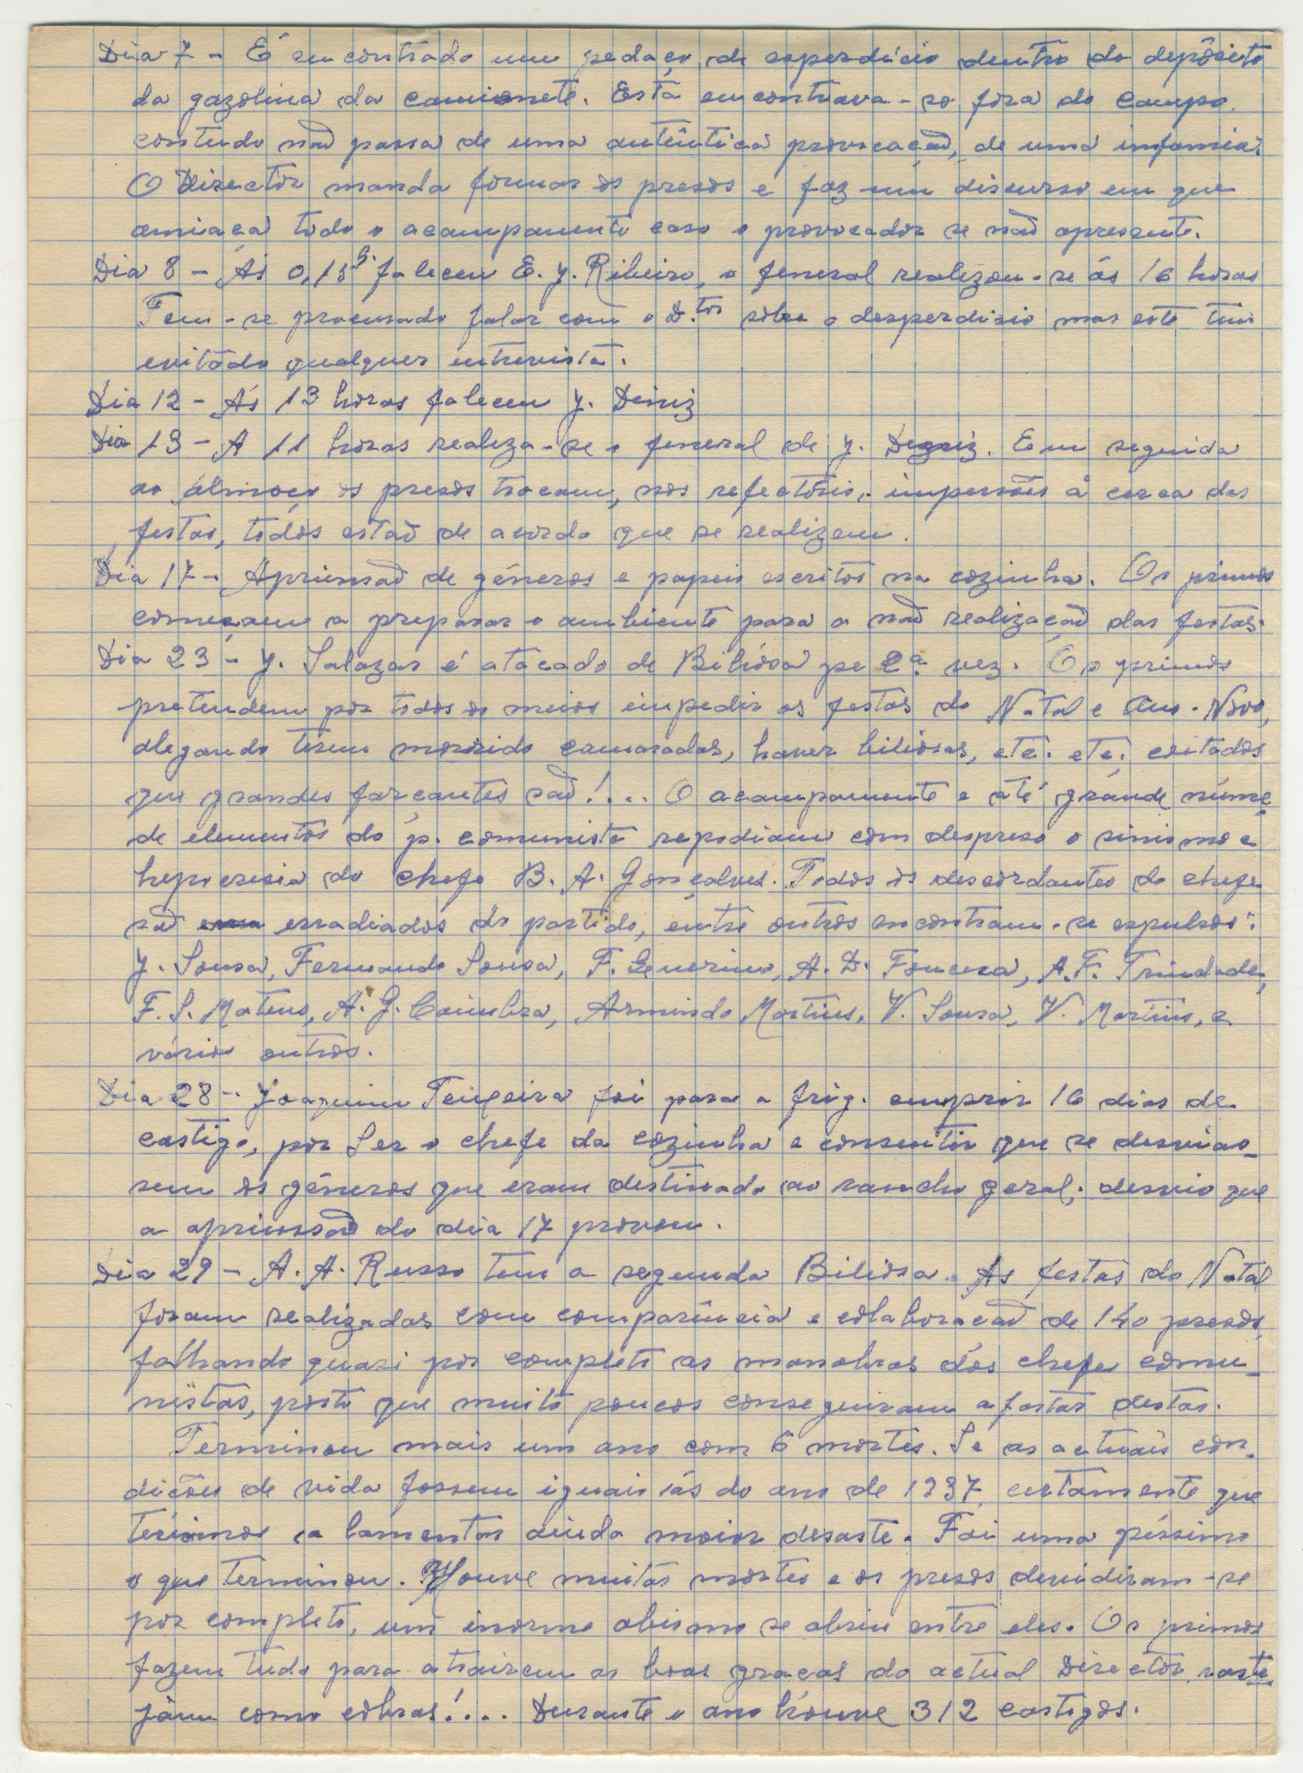 Dia 7 - É encontrado um pedaço de esperdicio dentro do depósito
da gazolina da camionete. Esta encontrava-se fora do campo,
contudo não passa de uma autêntica provocação, de uma infamia.
O Director manda formar os presos e faz um discurso em que
amiaça todo o acampamento caso o provocador se não apresente.
Dia 8 - Ás 0,15 h. faleceu E. J. Ribeiro, o feneral realizou-se ás 16 horas
Tem-se procurado falar com o D.tor sobre o desperdisio mas este tem
evitado qualquer entrevista.
Dia 12 - Ás 13 horas faleceu J. Diniz
Dia 13 - A 11 horas realiza-se o feneral de J. Deniz. Em seguida
ao álmoço os presos trocam, nos refectorios, impersões á cerca das
festas, todos estão de acordo que se realizem.
Dia 17 - Apriensão de géneros e papeis escritos na cozinha. Os primos
comesam a preparar o ambiente para a não realização das festas.
Dia 23 - J. Salazar é atacado de Biliósa pe 2ª vez. Os primos
pretendem por todos os meios impedir as festas do Natal e Ano-Novo,
alegando terem morrido camaradas, haver biliosas, etc. etc. coitados
que grandes farçantes são!... O acampamento e até grande núme
de elementos do p. comunista repodiam com despreso o sinismo e
hepocresia do chefe B. A. Gonçalves. Todos os descordantes do chefe
são erradiados do partido, entre outros encontram-se espulsos:
J. Sousa, Fernando Sousa, F. Quirino, A. D. Fonceca, A. F. Trindade,
F. S. Mateus, A. G. Coimbra, Armindo Martins, V. Sousa, V. Martins, e
vários outros.
Dia 28 - Joaquim Teixeira foi para a frig. cumprir 16 dias de
castigo, por ser o chefe da cozinha e consentir que se desvias-
sem os géneros que eram destinado ao rancho geral, desvio que
a apriensão do dia 17 provou.
Dia 29 - A. A. Russo tem a segunda Biliosa. As festas do Natal
foram realizadas com comparência e colaboração de 140 presos,
falhando quasi por completo as manobras dos chefes comu-
nistas, posto que muito poucos conseguiram afastar destas.
Terminou mais um ano com 6 mortes. Se as actuais con-
dições de vida fossem iguais ás do ano de 1937, certamente que
teriamos a lamentar ainda maior desaste. Foi uma péssimo
o que terminou. Houve muitas mortes e os presos devidiram-se
por completo, um inorme abismo se abriu entre eles. Os primos
fazem tudo para atrairem as boas graças do actual Director raste
jam como cobras!... Durante o ano houve 312 castigos.